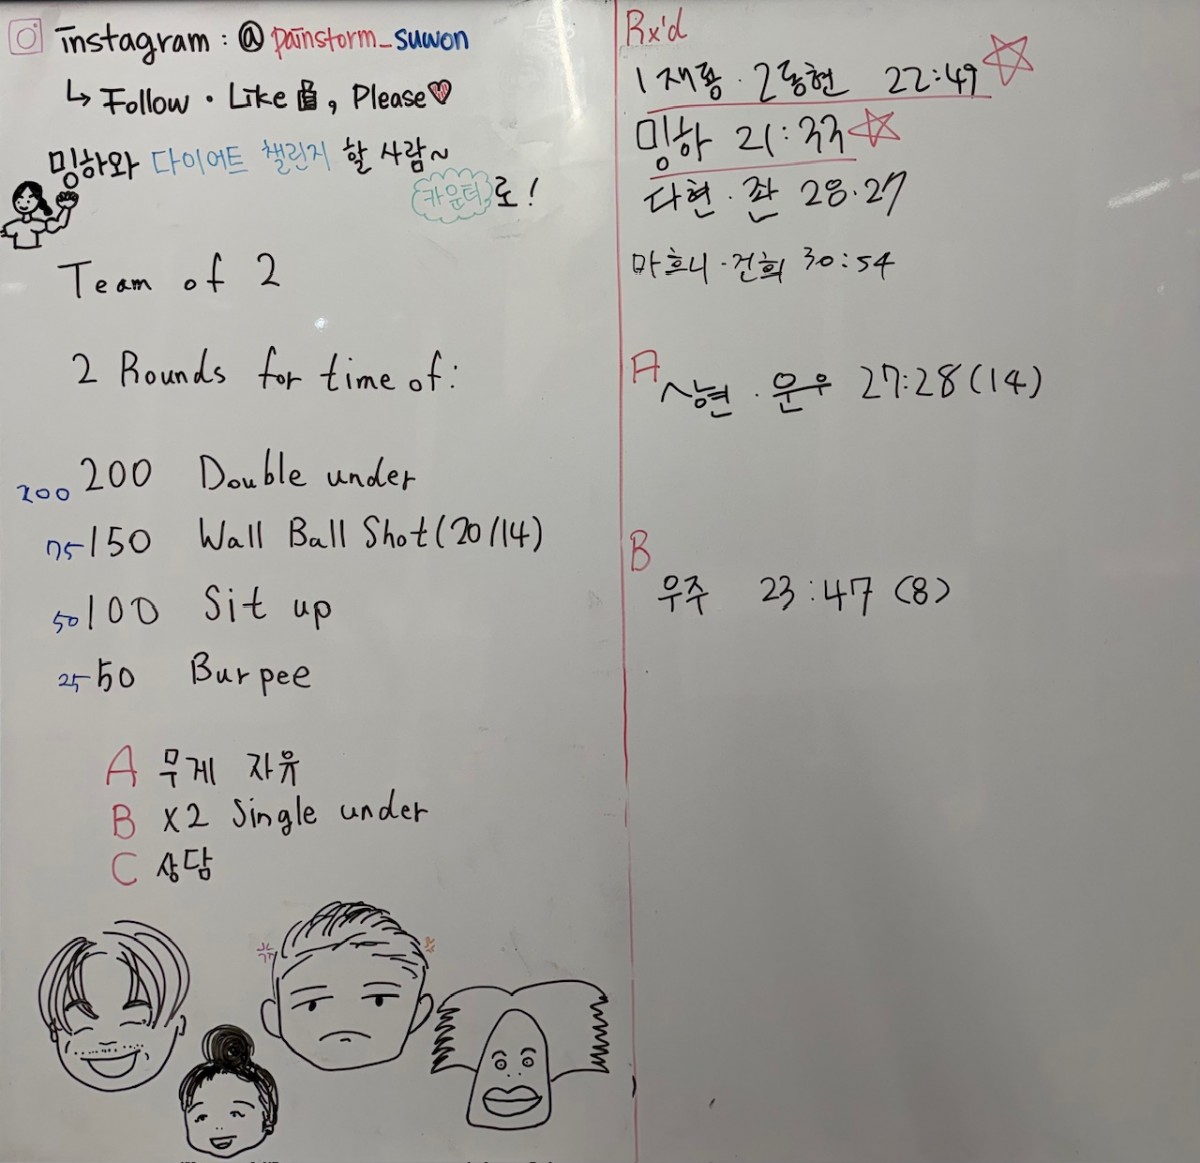 instagram : @ painstorm_suwon
↳ Follow · Like , Please♥
밍하와 다이어트 챌린지 할 사람~
카운터로!
Team of 2
2 Rounds for time of:
200 200 Double under
75 150 Wall Ball Shot(20/14)
50 100 Sit up
25 50 Burpee
A 무게 자유
B X2 Single under
C 상담
Rx'd
1 재룡 · 2 동현 22:49
밍하 21:33
다현 · 좐 28.27
마흐니 · 건희 30:54
A
상현 · 운우 27:28(14)
B
우주 23:47 (8)